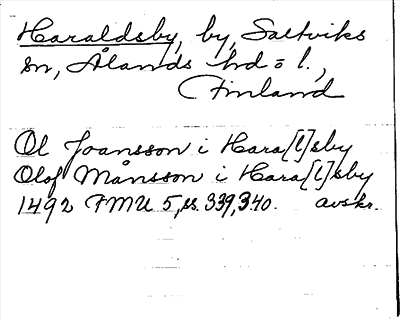 Haraldsby, by, Saltviks
sn, Ålands hd = l.,
Finland
Ol Joansson i Hara[l]sby
Olof Månsson i Hara[l]sby
1492 FMU 5, ss. 339, 340. avskr.